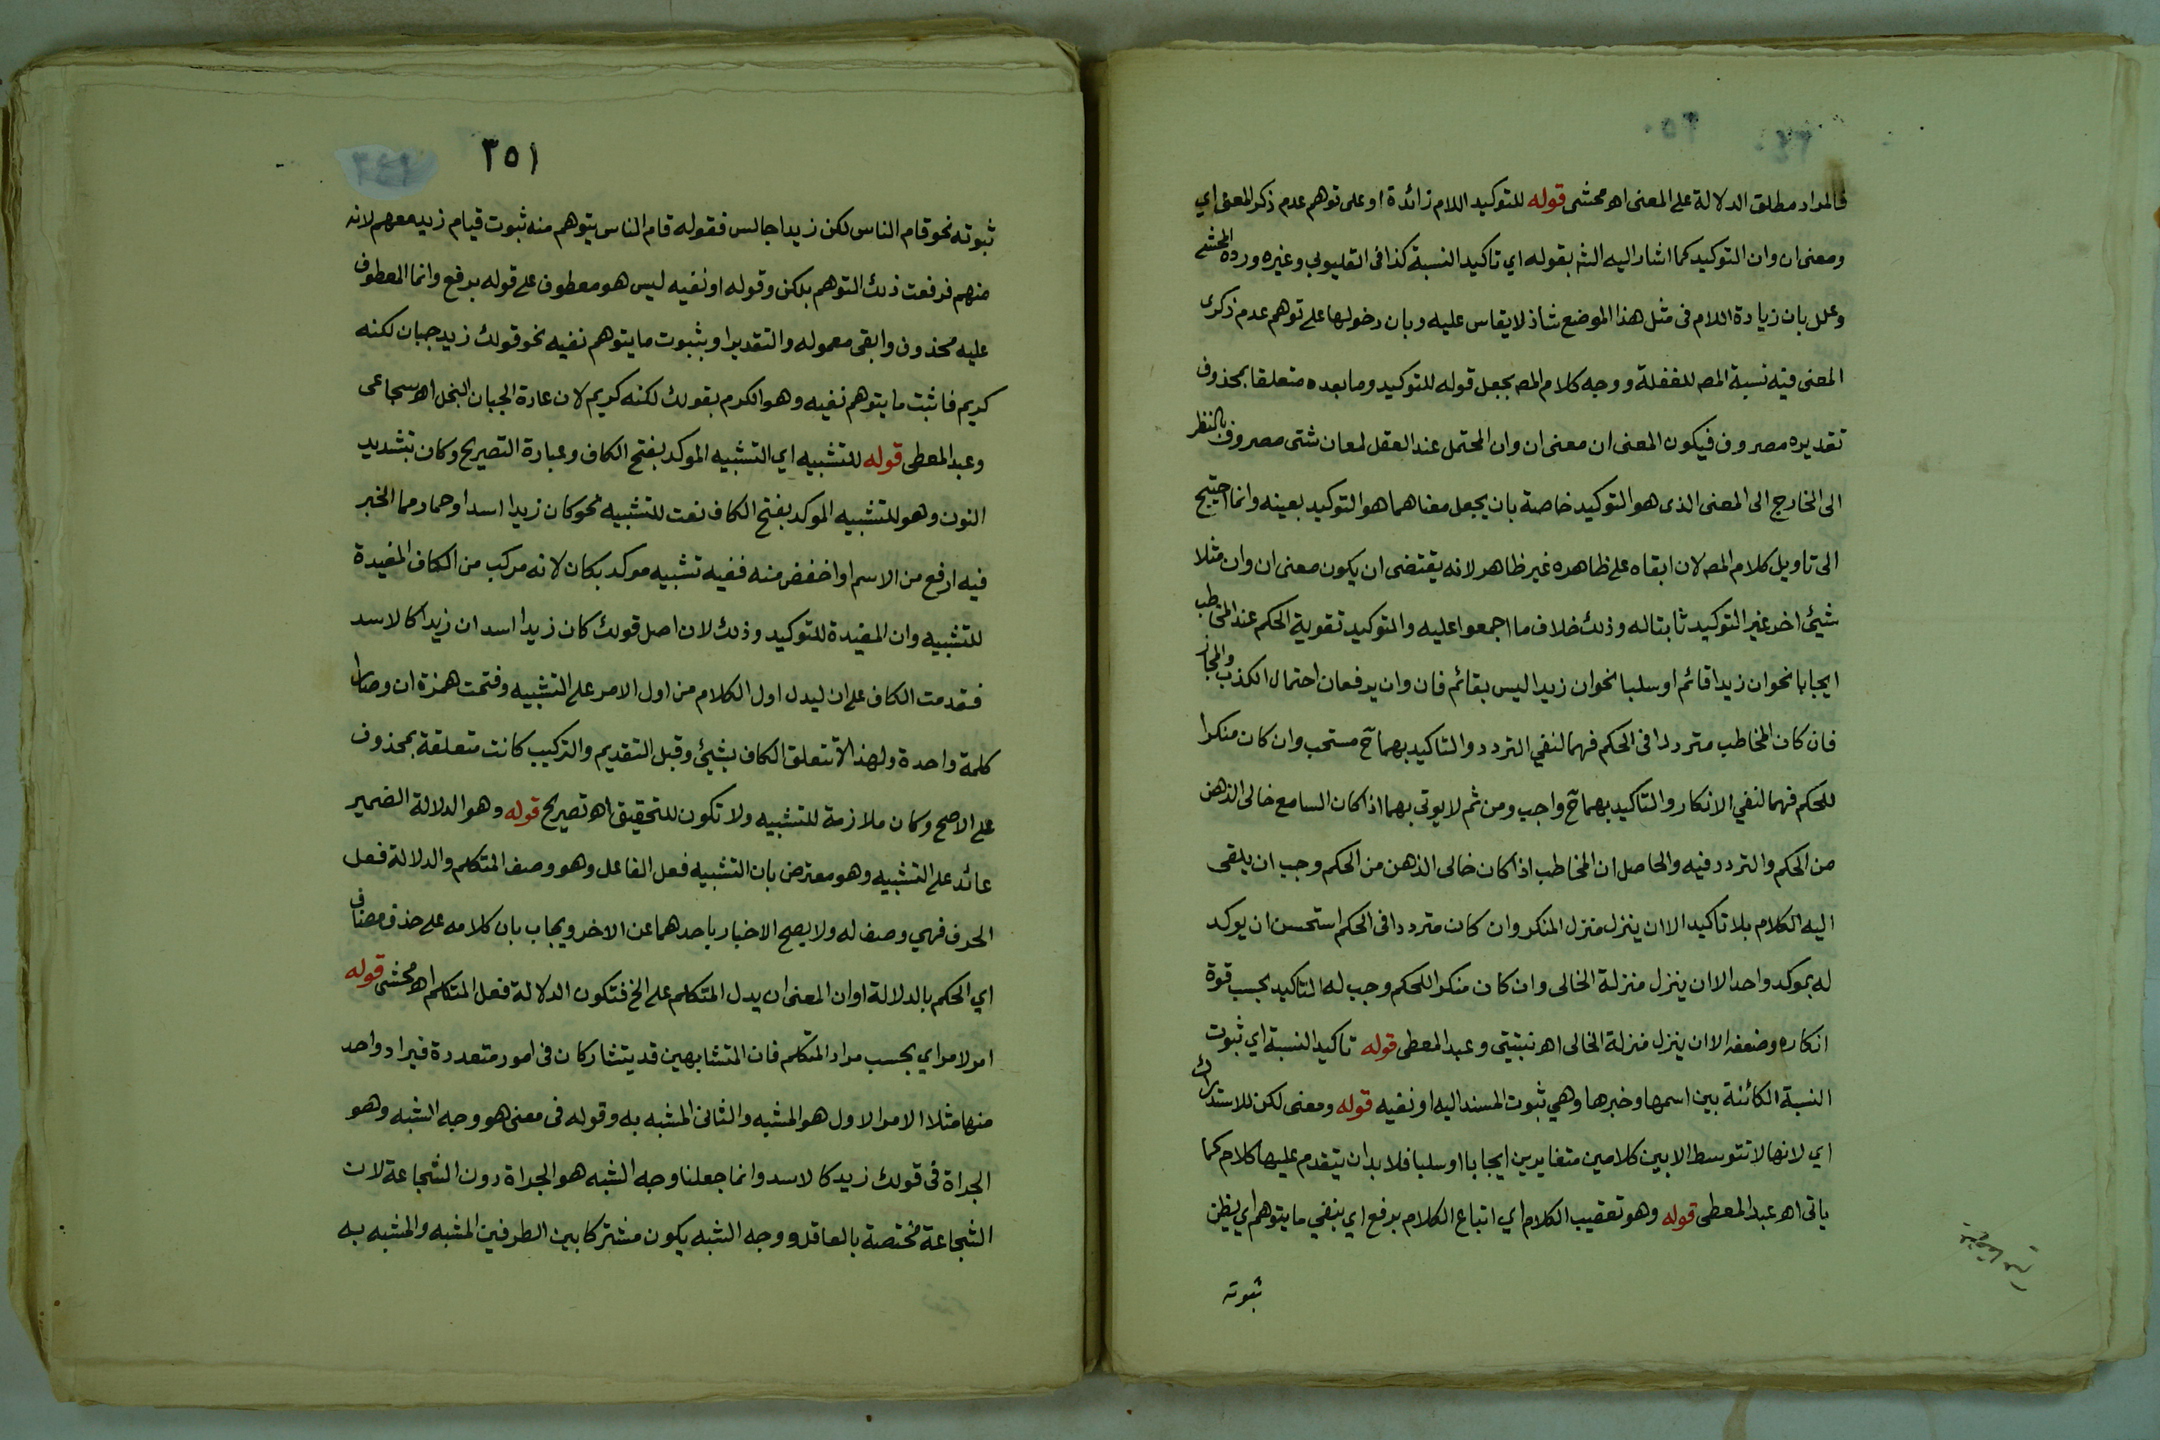 ٣٥٠
فالمراد مطلق الدلالة على المعنى اهـ محشى قوله للتوكيد اللام زائدة او على توهم عدم ذكر المعنى اي
ومعنى ان وان التوكيد كما اشار اليه الشـ بقوله اي تاكيد النسبة كذا فى القليوبى وغيره ورده المحشى
وعلل بان زيادة اللام فى مثل هذا الموضع شاذ لا يقاس عليه وبان دخولها على توهم عدم ذكرى
المعنى فيه نسبة المصـ للغفلة ووجه كلام المصـ بجعل قوله للتوكيد وما بعده متعلقا بمحذوف
تقديره مصروف فيكون المعنى ان معنى ان وان المحتمل عند العقل لمعان شتى مصروف بالنظر
الى الخارج الى المعنى الذى هو التوكيد خاصة بان يجعل معناهما هو التوكيد بعينه وانما احتيج
الى تاويل كلام المصـ لان ابقاه على ظاهره غير ظاهر لانه يقتضى ان يكون معنى ان وان مثلا
شيئ اخر غير التوكيد ثابتا له وذلك خلاف ما اجمعوا عليه والتوكيد تقوية الحكم عند المخاطب
ايجابا نحو ان زيدا قائم او سلبا نحو ان زيدا ليس بقائم فان وان يرفعان احتمال الكذب والمجاز
فان كان المخاطب مترددا فى الحكم فهما لنفي التردد والتاكيد بهما حـ مستحب وان كان منكرا
للحكم فهما لنفي الانكار والتاكيد بهما حـ واجب ومن ثم لا يوتى بهما اذا كان السامع خالى الذهن
من الحكم والتردد فيه والحاصل ان المخاطب اذا كان خالى الذهن من الحكم وجب ان يلقى
اليه الكلام بلا تاكيد الا ان ينزل منزل المنكر وان كان مترددا فى الحكم استحسن ان يوكد
له بموكد واحد الا ان ينزل منزلة الخالى وان كان منكرا للحكم وجب له التاكيد بحسب قوة
انكاره وضعفه الا ان ينزل منزلة الخالى اهـ نبتيتى وعبد المعطى قوله تاكيد النسبة اي ثبوت
النسبة الكائنة بين اسمها وخبرها وهي ثبوت المسند اليه او نفيه قوله ومعنى لكن للاستدراك
اي لانها لا تتوسط الا بين كلامين متغايرين ايجابا او سلبا فلا بد ان يتقدم عليها كلام كما
ياتى اهـ عبد المعطى قوله وهو تعقيب الكلام اي اتباع الكلام برفع اي بنفي ما يتوهم اي يظن
ثبوته
٣٥١
ثبوته نحو قام الناس لكن زيدا جالس فقوله قام الناس يتوهم منه ثبوت قيام زيد معهم لانه
منهم فرفعت ذلك التوهم بلكن وقوله او نفيه ليس هو معطوف على قوله برفع وانما المعطوف
عليه محذوف وابقى معموله والتقدير او بثبوت ما يتوهم نفيه نحو قولك زيد جبان لكنه
كريم فاثبت ما يتوهم نفيه وهو الكرم بقولك لكنه كريم لان عادة الجبان البخل اهـ سجاعى
وعبد المعطى قوله للتشبيه اي التشبيه الموكد بفتح الكاف وعبارة التصريح وكان بتشديد
النون وهو للتشبيه الموكد بفتح الكاف نعت للتشبيه نحو كان زيدا اسد او حمار مما الخبر
فيه ارفع من الاسم او اخفض منه ففيه تشبيه موكد بكان لانه مركب من الكاف المفيدة
للتشبيه وان المفيدة للتوكيد وذلك لان اصل قولك كان زيدا اسد ان زيدا كالاسد
فقدمت الكاف على ان ليدل اول الكلام من اول الامر على التشبيه وفتحت همزة ان وصارا
كلمة واحدة ولهذا لا تتعلق الكاف بشيئ وقبل التقديم والتركيب كانت متعلقة بمحذوف
على الاصح وكان ملازمة للتشبيه ولا تكون للتحقيق اهـ تصريح قوله وهو الدلالة الضمير
عائد على التشبيه وهو معترض بان التشبيه فعل الفاعل وهو وصف المتكلم والدلالة فعل
الحرف فهي وصف له ولا يصح الاخبار باحدهما عن الاخر ويجاب بان كلامه على حذف مضاف
اي الحكم بالدلالة او ان المعنى ان يدل المتكلم على الخ فتكون الدلالة فعل المتكلم اهـ محشى قوله
امر لامر اي بحسب مراد المتكلم فان المتشابهين قد يتشاركان فى امور متعددة فيراد واحد
منها مثلا الامر الاول هو المشبه والثانى المشبه به وقوله فى معنى هو وجه الشبه وهو
الجراة فى قولك زيد كالاسد وانما جعلنا وجه الشبه هو الجراة دون الشجاعة لان
الشجاعة مختصة بالعاقل ووجه الشبه يكون مشتركا بين الطرفين المشبه والمشبه به